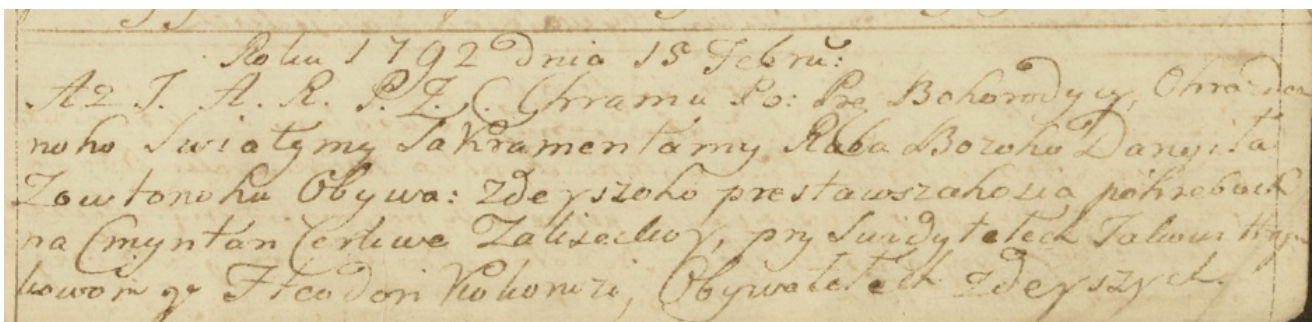 Roku 1792 Dnia 15 Febru:
Az I. A. R. P. Z. C. Chramu Po: Pre Bohorodycy, Ohražden
noho Swiatymy Sakramentamy Raba Bozoho Danyiła
Zowtonohu Obywa: zdeyszoho prestawszahosia pohreboch
na Cmyntari Cerkwe Zaliseckoy, pry Swidytelech
kowom y Fteodori Kokoruzi, Obywatelech zdeyszych.